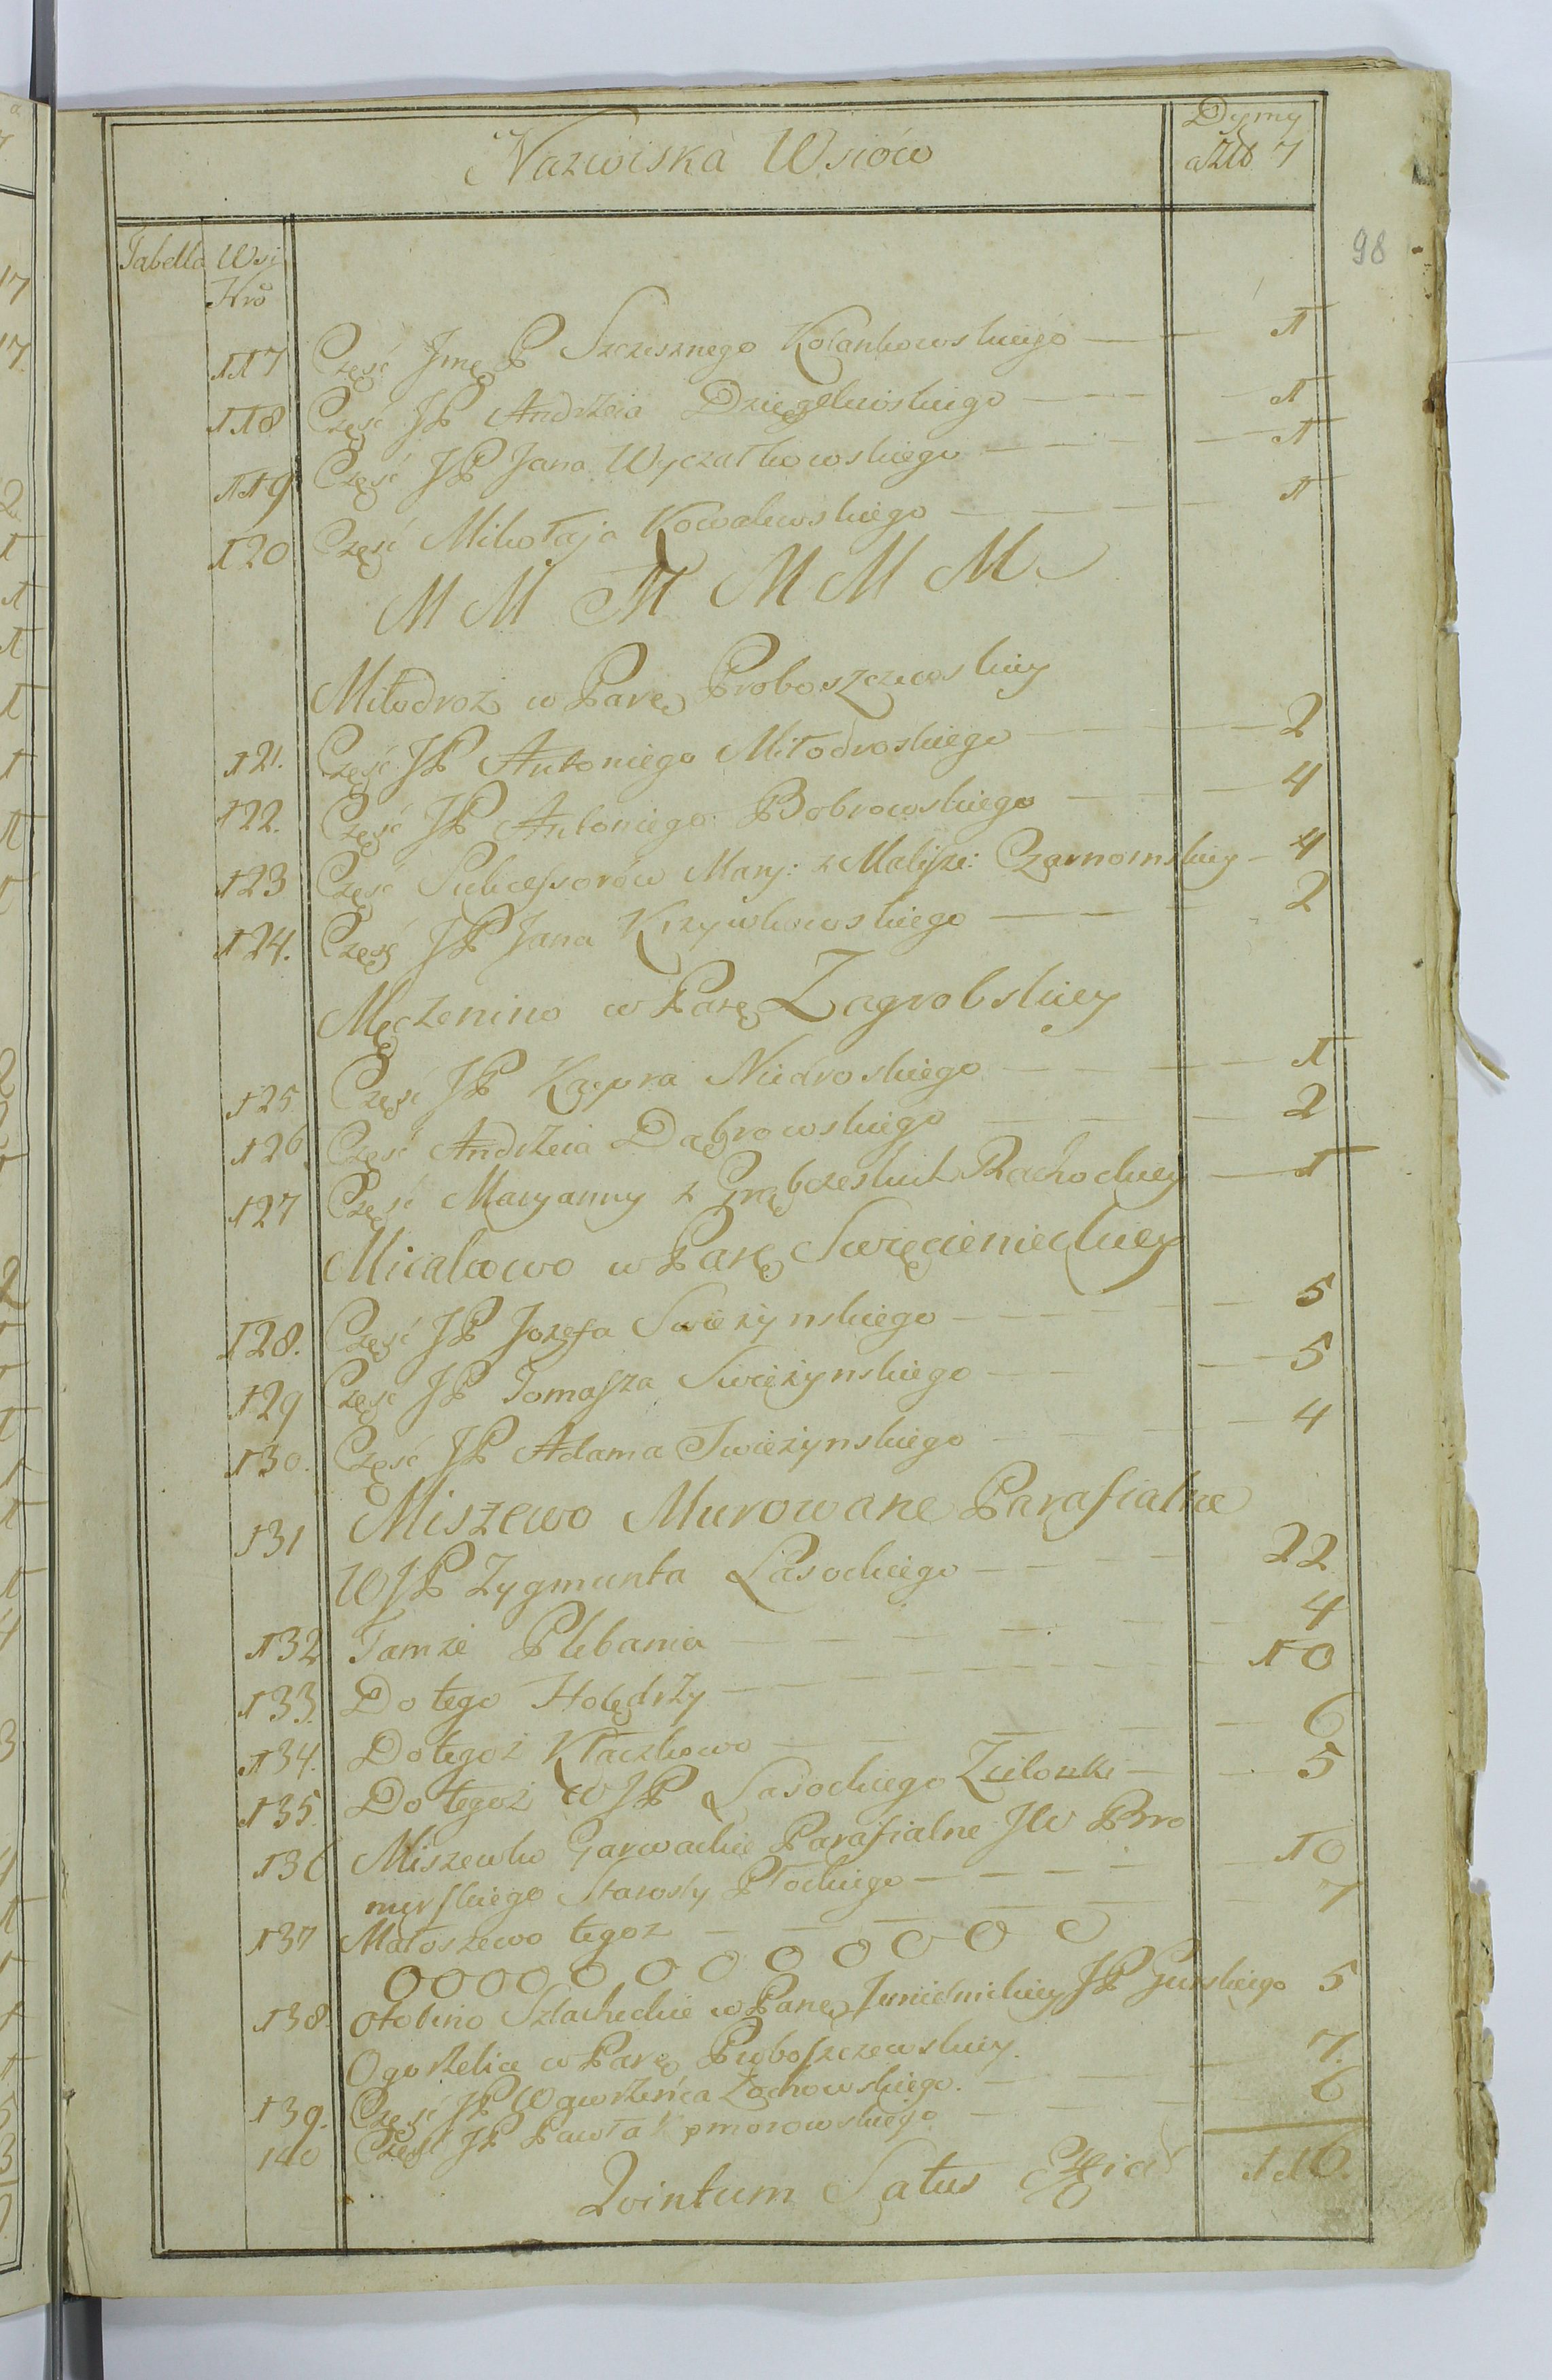 Nazwiska Wsiów
Dymy
a Zł 7
98
Tabella Wsi
Nro
117 Część Jmę P Szczesznego Kolankowskiego — 1
118 Część JP Andrzeia Dzięgelewskiego — 1
119 Część JP Jana Wyczałkowskiego — 1
120 Część Mikołaja Kowalewskiego — 1
M M M M M M
Miłodroż w Parę Proboszczewskiey
121. Część JP Antoniego Miłodroskiego — 2
122. Część JP Antoniego Bobrowskiego — 4
123 Część Sukcessorów Mary: z Malisze: Czarnomskiey — 4
124. Część JP Jana Krzywkowskiego — 2
Męczenino w Parę Zagrobskiey
125 Część JP Kacpra Niedroskiego — 1
126 Część Andrzeia Dąbrowskiego — 2
127 Część Maryanny z Grąbczeskich Rachockiey — 1
Micalowo w Parę Swięcienieckiey
128. Część JP Jozefa Swieżynskiego — 5
129 Część JP Tomasza Swieżynskiego — 5
130. Część JP Adama Swieżynskiego — 4
131 Miszewo Murowane Parafialne
WJP Zygmunta Lasockiego — 22
132 Tamże Plebania — 4
133. Do tego Holędrzy — 10
134. Do tegoż Kłaczkowo — 6
135. Do tegoż WJP Lasockiego Zielonki — 5
136 Miszewko Garwackie Parafialne JW Bro
mirskiego Starosty Płockiego — 10
137 Matoszewo tegoz — 7
O O O O O O O O O O O
138. Otolino Szlacheckie w Parę JP Gurskiego 5
Ogorzelice w Parę Proboszczewskiey
139. Część JP Wawrzeńca Żochowskiego. — 7.
140 Część JP Pawła Komorowskiego — 6
Qvintum Latus 116.